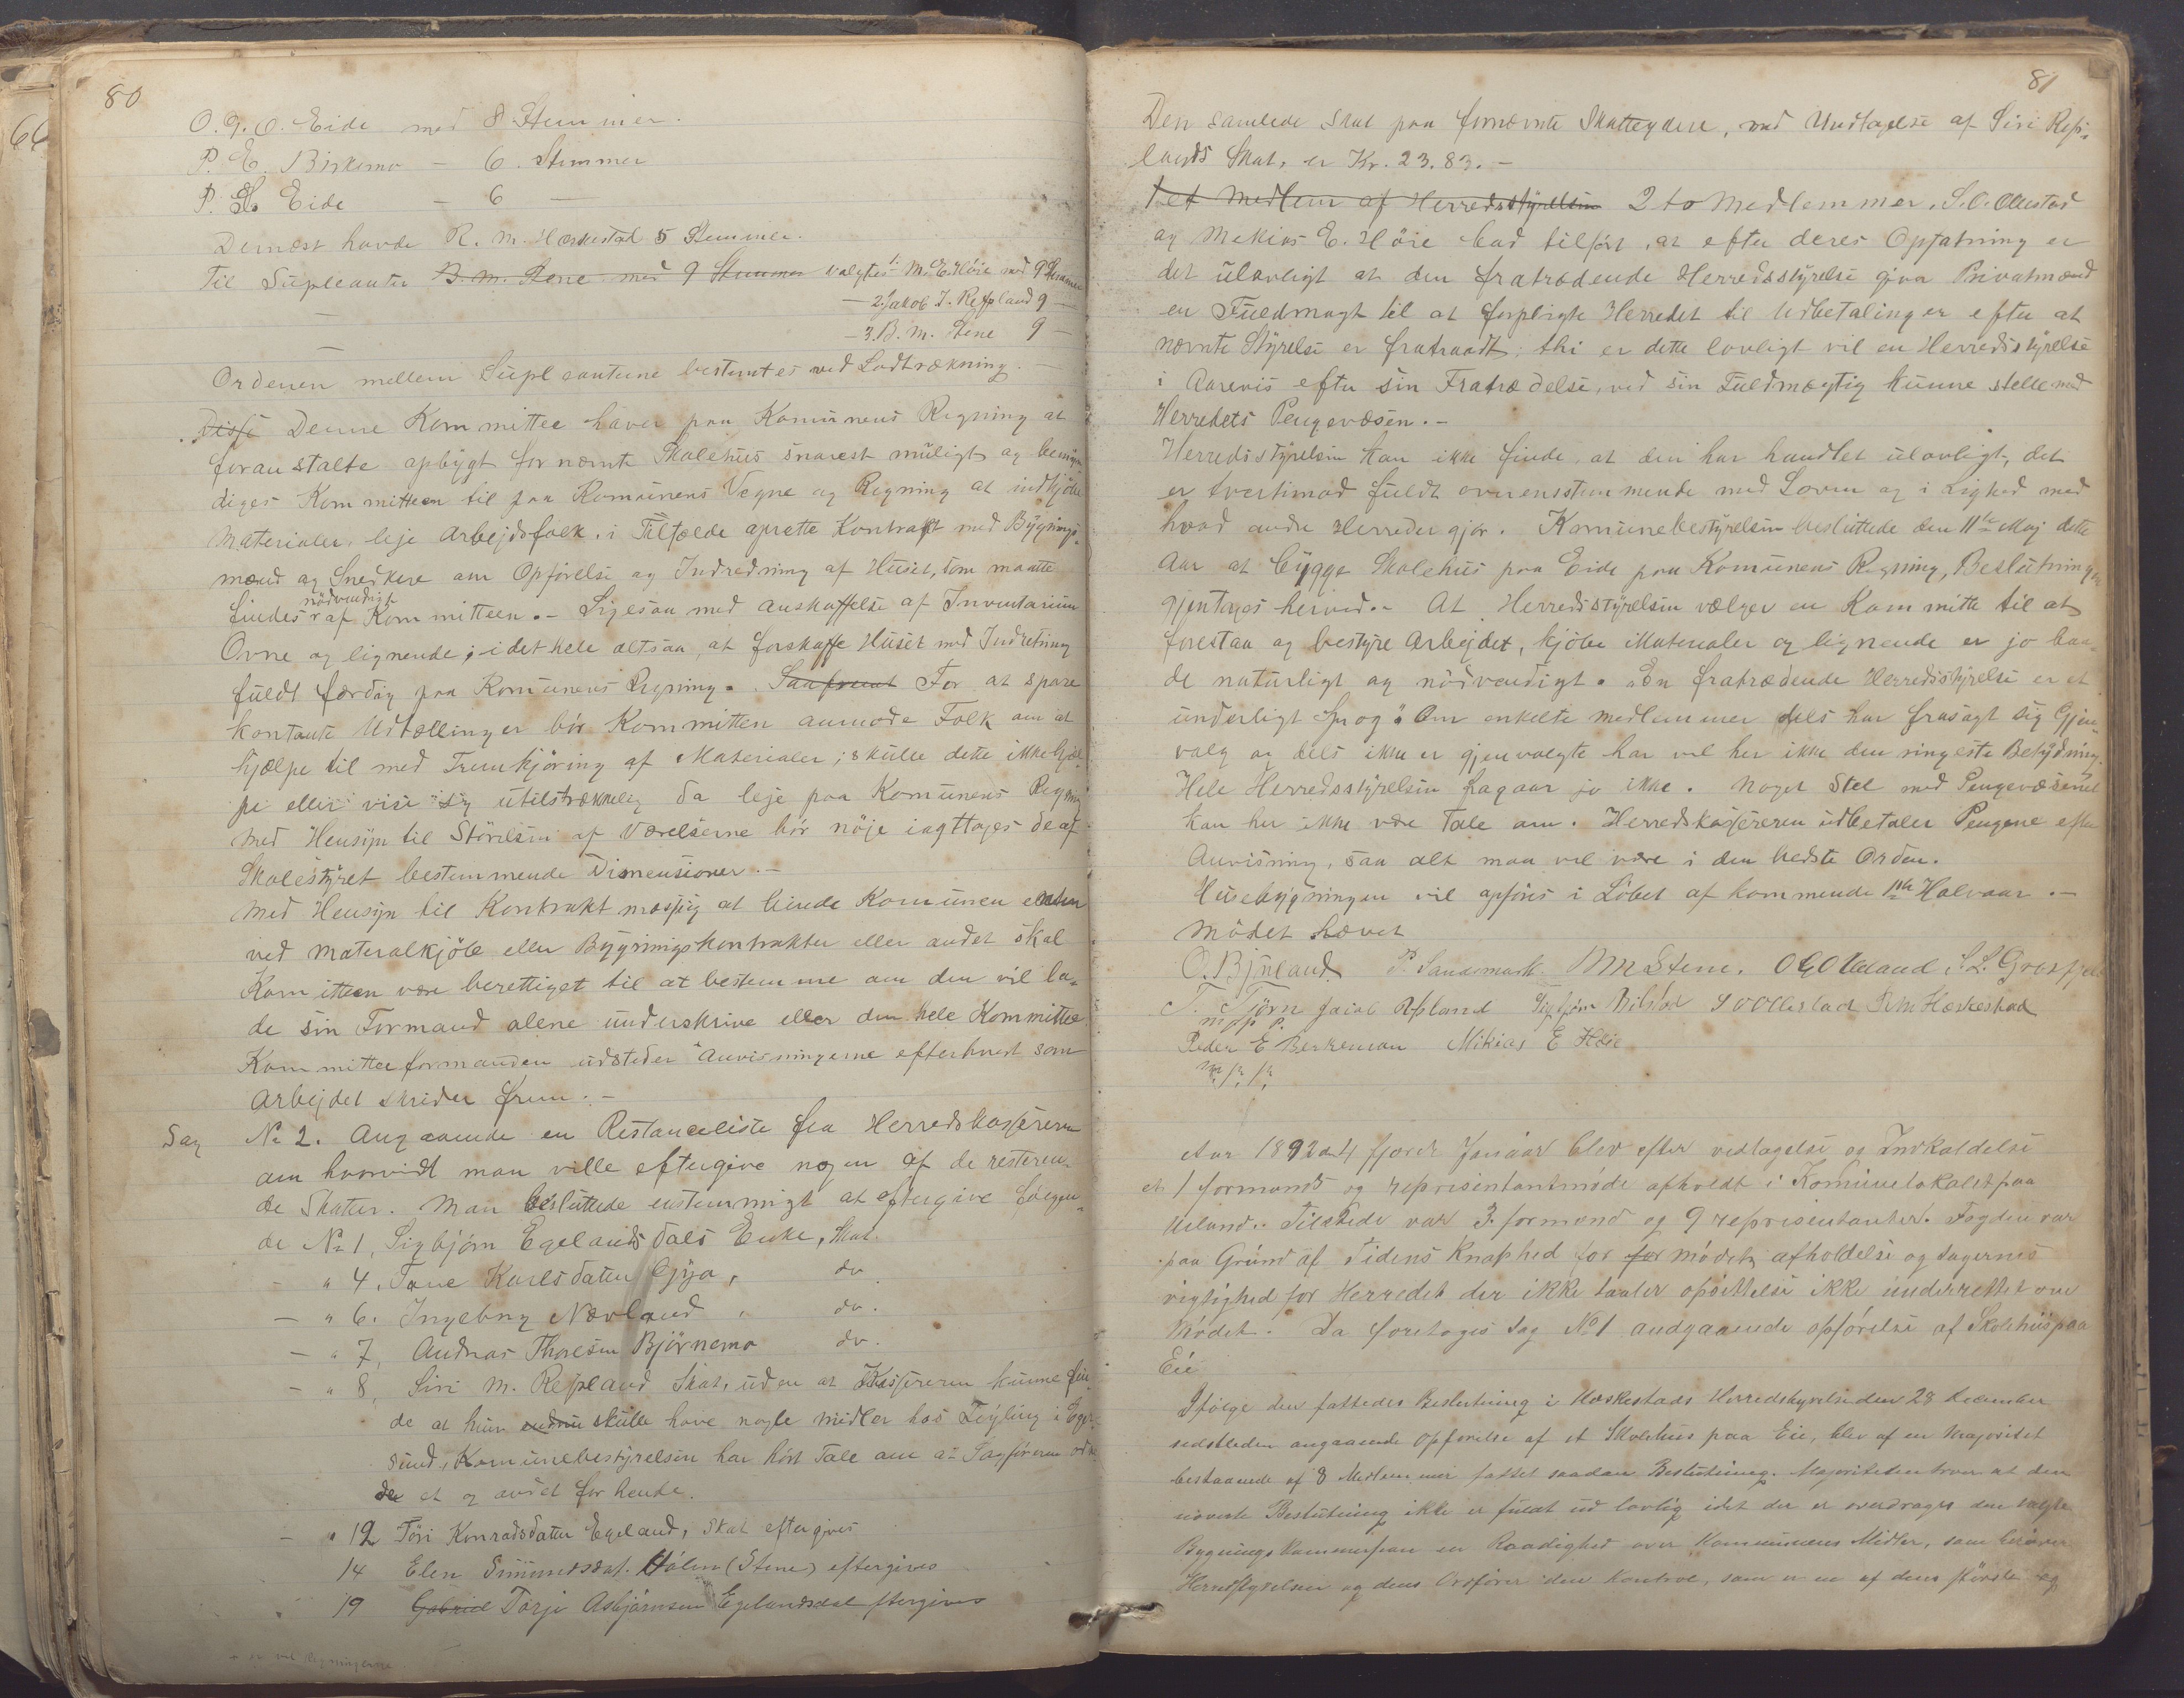 80
O. G. O. Eide med 8 Stemmer.
P. E. Birkemo - 6. Stemmer
P. Eide - 6 -
Dernæst havde R. M. Hæskestad 5 Stemmer.
Til Supleanter B. M. Stene med 9 Stemmer valgtes 1. M. E. Höie med 9 Stemmer
- 2. Jakob J. Refsland 9 -
- 3. B. M. Stene 9 -
Ordenen mellem Supleanterne bestemtes ved Lodtrækning. -
Disse Denne Kommittee haver paa Komunens Regning at
foranstalte opbygt fornævnte Skolehus snarest muligt og bemyn
diges Kommitteen til paa Komunens Vegne og Regning at indkjöbe
Materialer, leje Arbejdsfolk, i Tilfælde oprette Kontrakt med Bygnings-
mænd og Snedkere om Opförelse og Indredning af Huset, som maatte
findes nödvendigt af Kommitteen. - Ligesaa med Anskaffelse af Inventarium
Ovne og lignende; i det hele altsaa, at forskaffe Huset med Indretning
fuldt færdig paa Komunens Regning. Saafremt For at spare
kontante Udtællinger bör Kommitten anmode Folk om at
hjælpe til med Fremkjöring af Materialer; skulle dette ikke hjæl-
pe eller vise sig utilstrækkelig da leje paa Komunens Regning
Med Hensyn til Störelsen af Værelserne bör nöje iagttages de af
Skolestyret bestemmende Dimensioner. -
Med Hensyn til Kontraktmæssig at binde Komunen enten
ved Materialkjöb eller Bygningskontrakter eller andet skal
Komitteen være berettiget til at bestemme om den vil la-
de sin Formand alene underskrive eller den hele Kommittee
Kommitteeformanden udsteder Anvisningerne efterhvert som
Arbejdet skrider frem. -
Sag No 2. Angaaende en Restanceliste fra Herredskassereren
om hvorvidt man ville eftergive nogen af de resteren-
de Skatter. Man besluttede enstemmigt at eftergive fölgen-
de No 1, Sigbjörn Egelandsdals Enke, Skat.
- " 4, Tone Karlsdatter Gya, do
- " 6. Ingeborg Nævland, do.
- " 7, Andreas Thorsen Björnemo do.
- " 8, Siri M. Refsland Skat, uden at Kassereren kunne fin
de at hun endnu skulle have nogle midler hos Feyling i Eger-
sund, Komunebestyrelsen har hört Tale om at Sagföreren
et og andet for hende.
- " 12 Töri Konradsdatter Egeland, Skat eftergives
14 Elen Simundsdat. Hölen (Stene) eftergives
19 Gabriel Torje Asbjörnsen Egelandsdal eftergives
81
Den samlede Skat paa fornævnte Skatteydere, med Undtagelse af Siri Refs-
lands Skat, er Kr. 23.83. -
1 et Medlem af Herredsstyrelsen 2 to Medlemmer, S. O. Ollestad
og Mekias E. Höie bad tilfört, at efter deres Opfatning er
det ulovligt at den fratrædende Herredsstyrelse giva Privatmænd
en Fuldmagt til at forpligte Herredet til Udbetalinger efter at
nævnte Styrelse er fratraadt; thi er dette lovligt vil en Herredsstyrelse
i Aarevis efter sin Fratrædelse, ved sin Fuldmægtig kunne stelle med
Herredets Pengevæsen. -
Herredsstyrelsen kan ikke finde, at den har handlet ulovligt, det
er tvertimod fuldt overensstemmende med Loven og i Lighed med
hvad andre Herreder gjör. Komunebestyrelsen besluttede den 11te Maj dette
Aar at bygge Skolehus paa Eide paa Komunens Regning, Beslutningen
gjentages herved. - At Herredsstyrelsen vælger en Kommitte til at
forestaa og bestyre Arbejdet, kjöbe Materialer og lignende er jo baa-
de naturligt og nödvendigt. "En fratrædende Herredsstyrelse er et
underligt Sprog". Om enkelte medlemmer dels har frasagt sig Gjen-
valg og dels ikke er gjenvalgte har vel her ikke den ringeste Betydning.
Hele Herredsstyrelsen fragaar jo ikke. Noget Stel med Pengevæsenet
kan her ikke være Tale om. Herredskassereren udbetaler Pengene efter
Anvisning, saa alt maa vel være i den bedste Orden.
Husebygningen vil opföres i Löbet af kommende 1ste Halvaar. -
Mödet hævet
O. Bjuland P. Sandsmark BM Stene. O G O Ueland S. L. Grosfjeld
T. Tjörn Jakob Refsland Sigbjörn S O Ollestad R M Hæskestad
m p p
Peder E Berkemoen Mikias E Höie
m. p. p.
Aar 1892 d 4 fjerde Januar blev efter vedtagelse og Indkaldelse
et 1 formands og represintantmöde afholdt i Komunelokalet paa
Ueland. Tilstede var 3. formænd og 9 represintanter. Fogden var
paa Grund af Tidens Knaphed for for Mödets afholdelse og sagernes
vigtighed for Herredet der ikke taaler opsittelse ikke underrettet om
Mödet. Da foretoges sag No 1 andgaaende opförelse af Skolehus paa
Eie
Ifölge den fattedes Beslutning i Heskestads Herredsstyrelse den 28 December
sidstleden angaaende Opförelse af et Skolehus paa Eie, blev af en Majoritet
bestaaende af 8 Medlemmer fattet saadan Beslutning. Majoriteten tror at den
nævnte Beslutning ikke er fuldt ud lovlig idet der er overdraget den valgte
Bygningskommission en Raadighed over Kommunens Midler, som beröver
Herredsstyrelsen og dens Ordförer den Kontrol, som er en af dens störste og